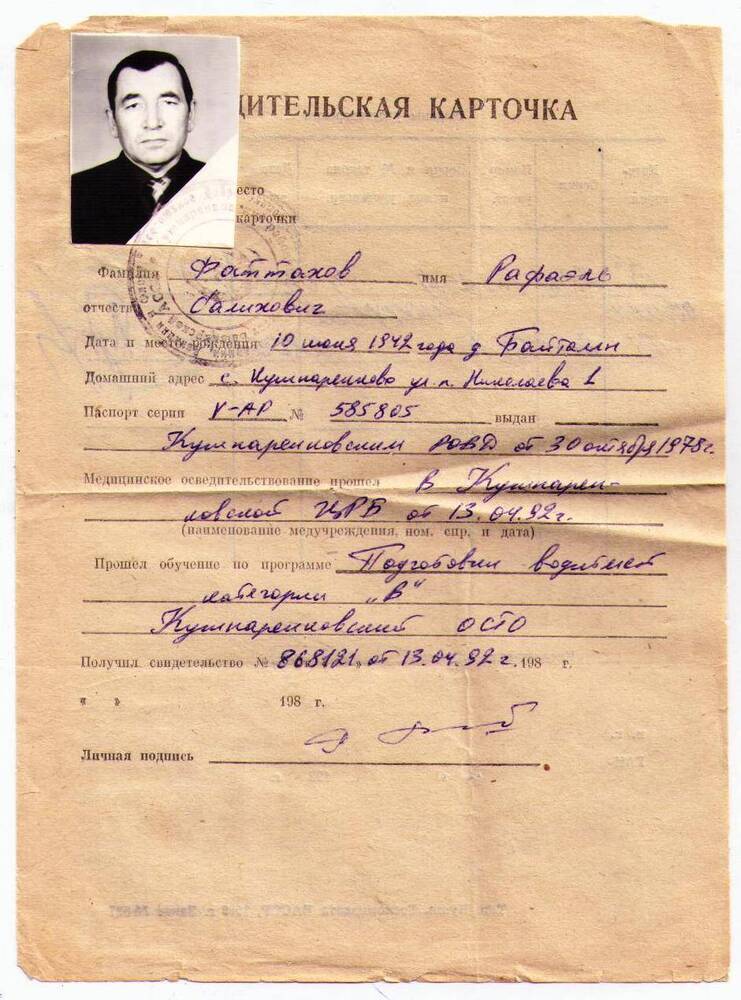 ДИТЕЛЬСКАЯ КАРТОЧКА
есто
карточки
Фамилия Фаттахов имя Рафаэль
отчество Салихович
Дата и место рождения 10 июня 1942 года д. Байталы
Домашний адрес с. Кушнаренково ул. п. Николаева 1
Паспорт серии V-АР № 585805 выдан
Кушнаренковским РОВД от 30 октября 1978 г.
Медицинское освидетельствование прошел в Кушнарен-
ковской ЦРБ от 13.04.92 г.
(наименование медучреждения, ном. спр. и дата)
Прошел обучение по программе Подготовки водителей
категории „В“
Кушнаренковский ОСТО
Получил свидетельство № 868121 от 13.04.92 г. 198 г.
« » 198 г.
Личная подпись